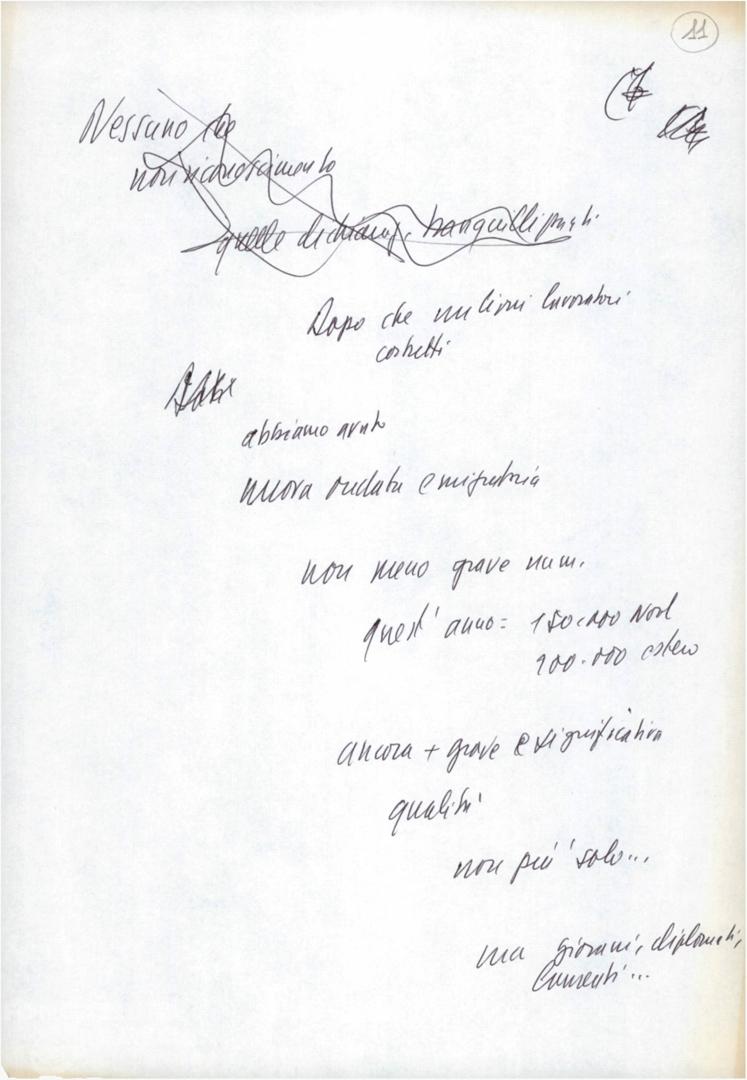 11
Nessuno che
non riconoscimento
quelle dichiaraz. tranquillizzanti
Dopo che milioni lavoratori
costretti
abbiamo avuto
nuova ondata emigratoria
non meno grave num.
quest'anno = 150.000 Nord
200.000 estero
ancora + grave e significativa
qualità
non più solo...
ma giovani, diplomati,
laureati...